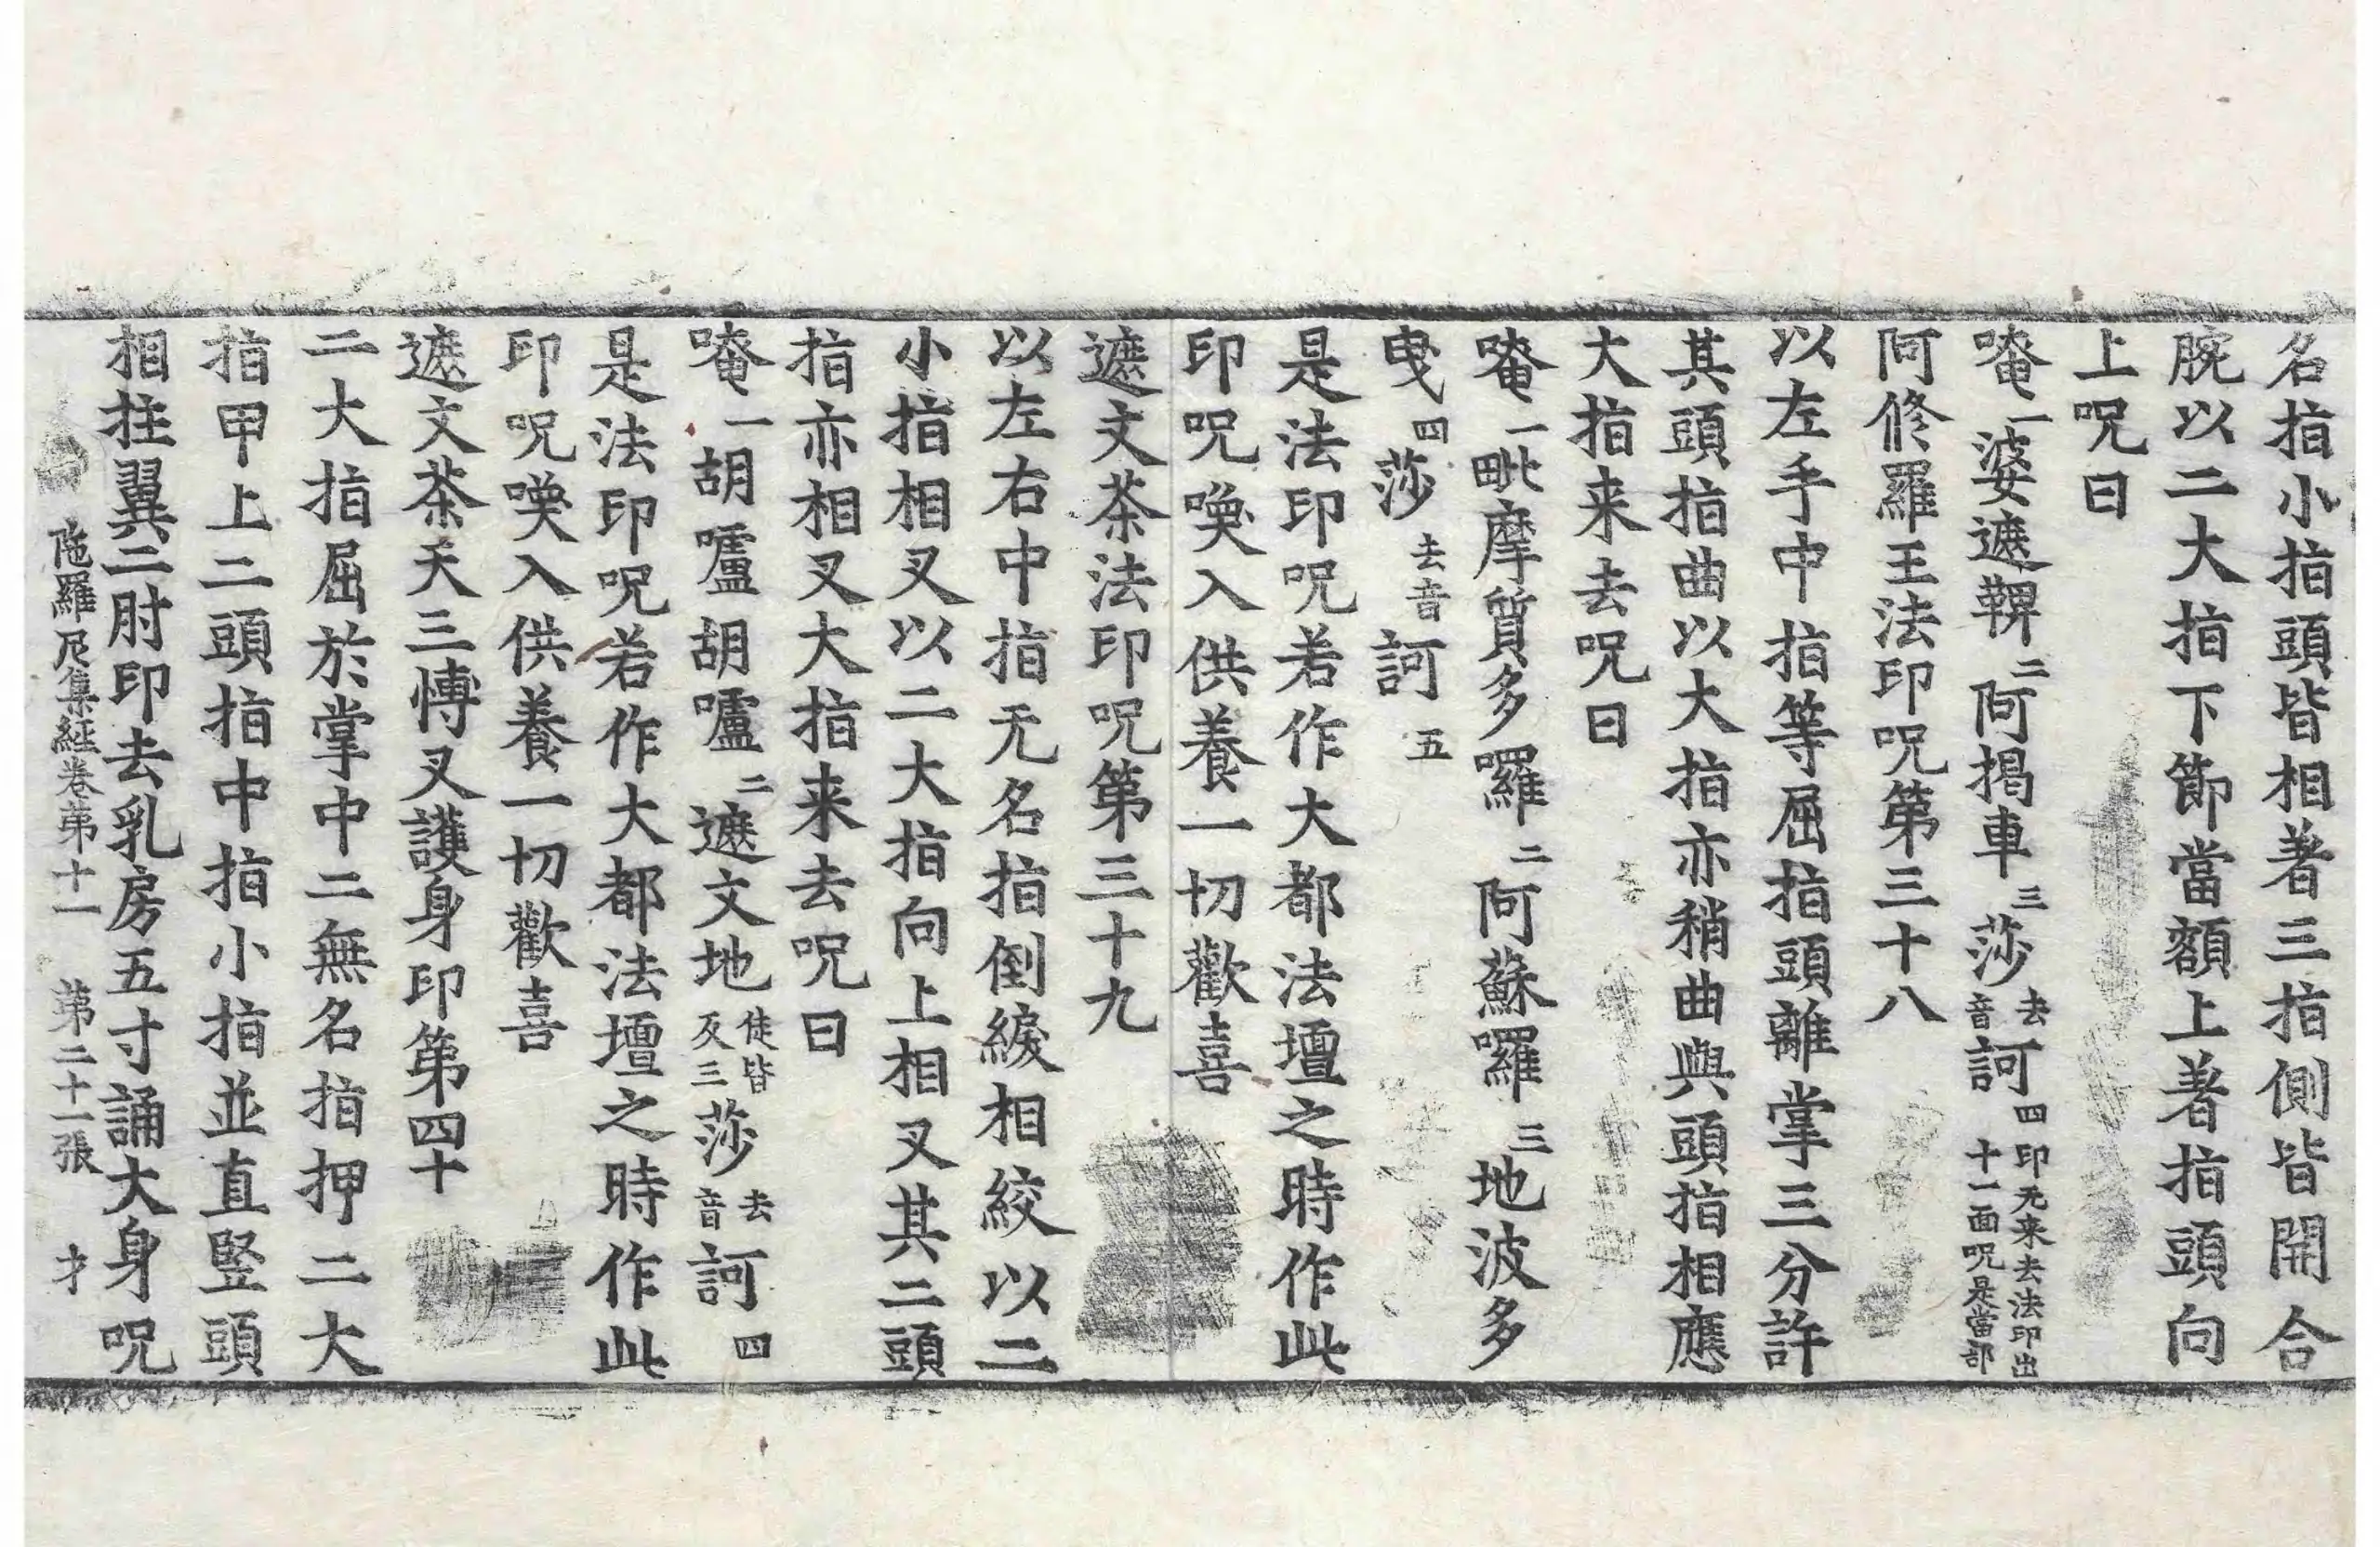 名指小指頭皆相著三指側皆開合
腕以二大指下節當額上著指頭向
上呪曰
唵一婆遮鞞二阿揭車三莎去音訶四印元来去法印出十一面呪是當部
阿修羅王法印呪第三十八
以左手中指等屈指頭離掌三分許
其頭指曲以大指亦稍曲與頭指相應
大指来去呪曰
唵一毗摩質多囉二阿蘇囉三地波多
曳四莎去音訶五
是法印呪若作大都法壇之時作此
印呪喚入供養一切歡喜
遮文茶法印呪第三十九
以左右中指无名指倒縵相絞以二
小指相叉以二大指向上相叉其二頭
指亦相叉大指来去呪曰
唵一胡嚧胡嚧二遮文地徒皆反三莎去音訶四
是法印呪若作大都法壇之時作此
印呪喚入供養一切歡喜
遮文茶天三愽叉護身印第四十
二大指屈於掌中二無名指押二大
指甲上二頭指中指小指並直竪頭
相拄翼二肘印去乳房五寸誦大身呪
陁羅尼集経卷第十一 第二十一張 才